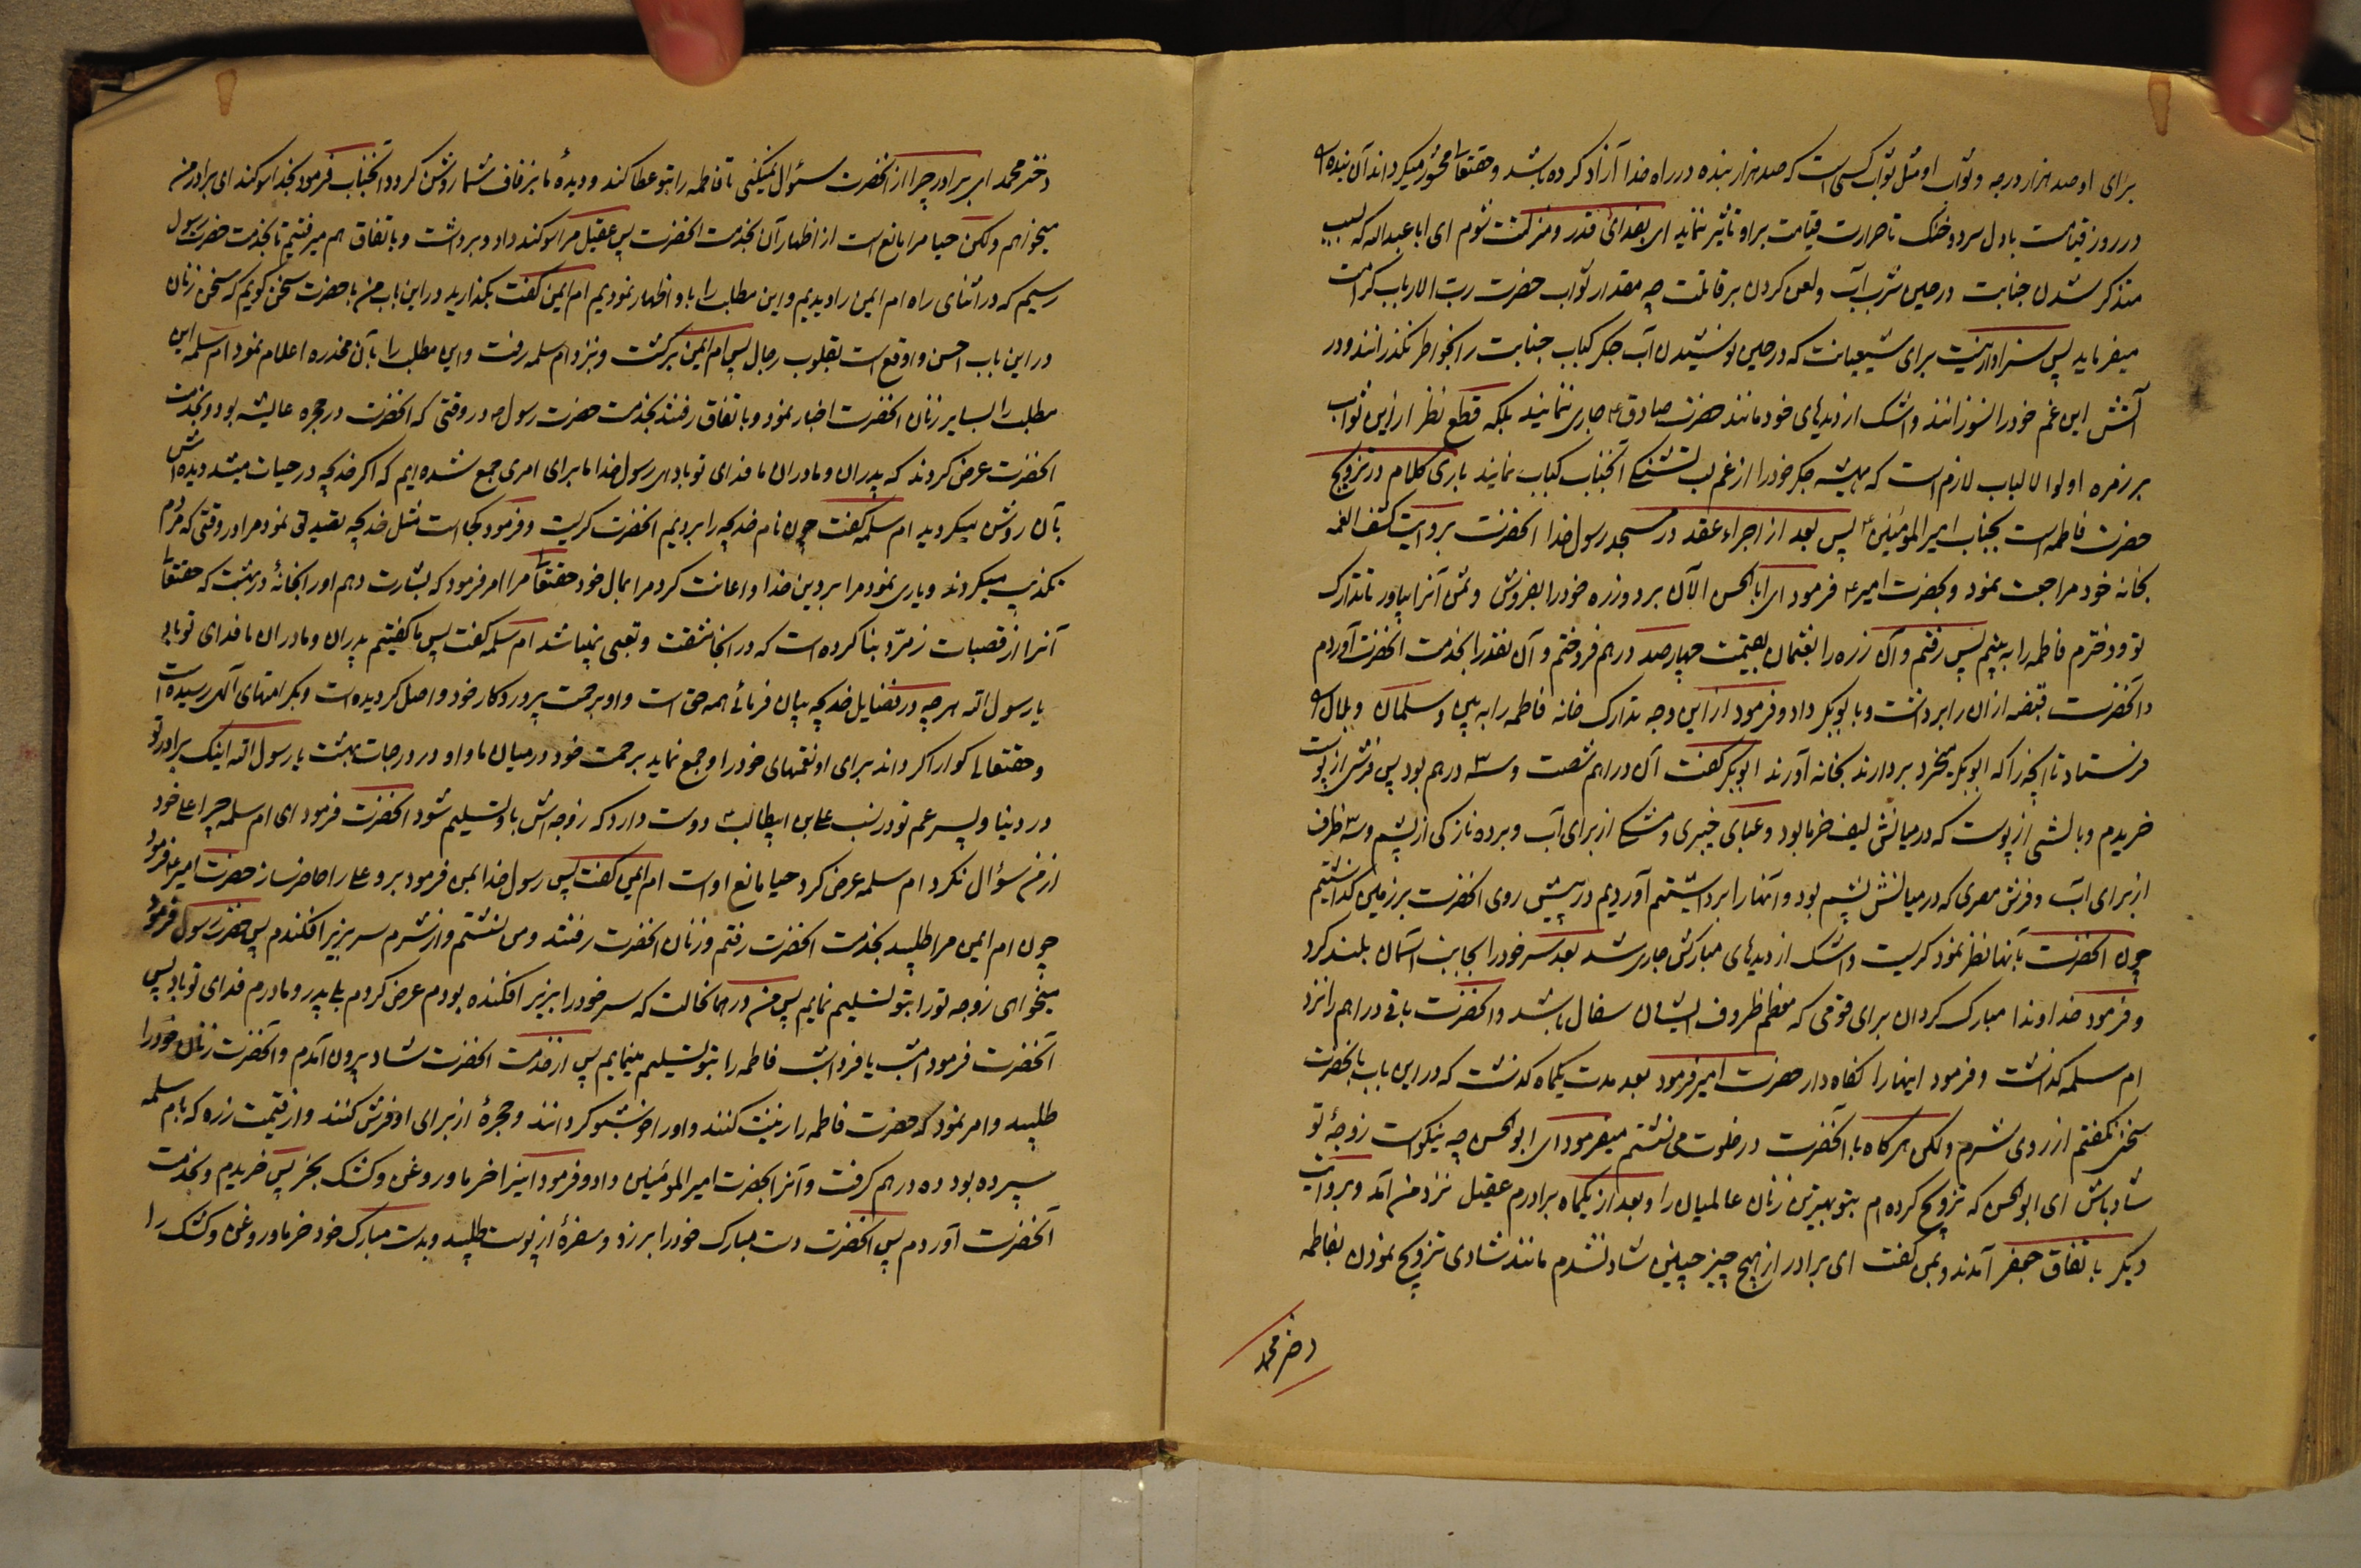 برای او صد هزار درجه و ثواب او مثل ثواب کسی است که صد هزار بنده در راه خدا آزاد کرده باشد و حقتعالی محشور میکرداند آن بنده را
در روز قیامت با دل سرد و خنک تا حرارت قیامت بر او تأثیر ننماید ای بفدای قدر و منزلتت شوم ای ابا عبدالله که بسبب
متذکر شدن جنابت در حین شرب آب و لعن کردن بر قاتلت چه مقدار ثواب حضرت رب الارباب کرامت
میفرماید پس سزاوار نیست برای شیعیانت که در حین نوشیدن آب جکر کباب جنابت را بخواطر نکذرانند و در
آتش این غم خود را نسوزانند و اشک از دیدهای خود مانند حضرت صادق ع جاری ننمایند بلکه قطع نظر از این ثواب
بر زمره اولوا الالباب لازم است که همیشه جکر خود را از غم لب تشنکی آنجناب کباب نمایند باری کلام در تزویج
حضرت فاطمه است بجناب امیرالمؤمنین ع پس بعد از اجراء عقد در مسجد رسول خدا آنحضرت بروایت کشف الغمه
بخانه خود مراجعت نمود و بحضرت امیر ع فرمود ای ابا الحسن الآن برو و زره خود را بفروش و ثمن آنرا بیاور تا تدارک
تو و دخترم فاطمه را به بینم پس رفتم و آن زره را بعثمان بقیمت چهارصد درهم فروختم و آن نقد را بخدمت آنحضرت آوردم
و آنحضرت قبضه ازان را برداشت و بابوبکر داد و فرمود از این وجه تدارک خانه فاطمه را به بین و سلمان و بلال را
فرستاد تا آنچه را که ابوبکر میخرد بردارند بخانه آورند ابوبکر کفت آن دراهم شصت و سه درهم بود پس فرشی از پوست
خریدم و بالشی از پوست که در میانش لیف خرما بود و عبای خیبری و مشکی از برای آب و پرده نازکی از پشم و سه ظرف
از برای آب و فرش مصری که در میانش پشم بود و آنها را برداشتیم آوردیم در پیش روی آنحضرت بر زمین کذاشتیم
چون آنحضرت بآنها نظر نمود کریست و اشک از دیدهای مبارکش جاری شد بعد سر خود را بجانب آسمان بلند کرد
و فرمود خداوندا مبارک کردان برای قومی که معظم ظروف ایشان سفال باشد و آنحضرت باقی دراهم را نزد
ام سلمه کذاشت و فرمود اینها را نکاه دار حضرت امیر فرمود بعد مدت یکماه کذشت که در این باب بآنحضرت
سخن نکفتم از روی شرم ولکن هر کاه با آنحضرت در خلوت می نشستم میفرمود ای ابوالحسن چه نیکوست زوجهٔ تو
شاد باش ای ابوالحسن که تزویج کرده ام بتو بهترین زنان عالمیان را و بعد از یکماه برادرم عقیل نزد من آمد و بروایت
دیکر باتفاق جعفر آمدند و بمن کفت ای برادر از هیچ چیز چنین شاد نشدم مانند شادی تزویج نمودن بفاطمه
دختر محمد
دختر محمد ای برادر چرا از آنحضرت سؤال نمیکنی تا فاطمه را بتو عطا کند و دیدهٔ ما بزفاف شما روشن کردد آنجناب فرمود بخدا سوکند ای برادر من
میخواهم ولکن حیا مرا مانع است از اظهار آن بخدمت آنحضرت پس عقیل مرا سوکند داد و برداشت و باتفاق هم میرفتیم تا بخدمت حضرت رسول
رسیم که در اثنای راه ام ایمن را دیدیم و این مطلب را باو اظهار نمودیم ام ایمن کفت بکذارید در این باب من با حضرت سخن کویم که سخن زنان
در این باب احسن و اوقع است بقلوب رجال پس ام ایمن برکشت و نزد ام سلمه رفت و این مطلب را بآن مخدره اعلام نمود ام سلمه این
مطلب را بسایر زنان آنحضرت اخبار نمود و باتفاق رفتند بخدمت حضرت رسول ص در وقتی که آنحضرت در حجره عایشه بود و بخدمت
آنحضرت عرض کردند که پدران و مادران ما فدای تو باد ای رسول خدا ما برای امری جمع شده ایم که اکر خدیجه در حیات میشد دیده اش
بآن روشن میکردید ام سلمه کفت چون نام خدیجه را بردیم آنحضرت کریست و فرمود کجا است مثل خدیجه تصدیق نمود مرا در وقتی که مردم
تکذیب میکردند و یاری نمود مرا بر دین خدا و اعانت کرد مرا بمال خود حقتعالی مرا امر فرمود که بشارت دهم او را بخانهٔ در بهشت که حقتعالی
آنرا از قصبات زمرّد بنا کرده است که در آنجا مشقت و تعبی نمیباشد ام سلمه کفت پس ما کفتیم پدران و مادران ما فدای تو باد
یا رسول الله هر چه در فضایل خدیجه بیان فرمائی همه حق است و او برحمت پروردکار خود واصل کردیده است و بکرامتهای الهی رسیده است
و حقتعالی کوارا کرداند برای او نعمتهای خود را و جمع نماید برحمت خود در میان ما و او در درجات بهشت یا رسول الله اینک برادر تو
در دنیا و پسر عم تو در نسب علی بن ابیطالب دوست دارد که زوجه اش باو تسلیم شود آنحضرت فرمود ای ام سلمه چرا علی خود
از من سؤال نکرد ام سلمه عرض کرد حیا مانع او است ام ایمن کفت پس رسول خدا بمن فرمود برو علی را حاضر ساز حضرت امیر ع فرمود
چون ام ایمن مرا طلبید بخدمت آنحضرت رفتم و زنان آنحضرت رفتند و من نشستم و از شرم سر بزیر افکندم پس حضرت رسول فرمود
میخواهی زوجه تو را بتو تسلیم نمایم پس من در همانحالت که سر خود را بزیر افکنده بودم عرض کردم بلی پدر و مادرم فدای تو باد پس
آنحضرت فرمود امشب یا فردا شب فاطمه را بتو تسلیم مینمایم پس از خدمت آنحضرت شاد بیرون آمدم و آنحضرت زنان خود را
طلبید و امر نمود که حضرت فاطمه را زینت کنند و او را خوشبو کردانند و حجرهٔ از برای او فرش کنند و از قیمت زره که بام سلمه
سپرده بود ده درهم کرفت و آنرا بحضرت امیرالمؤمنین داد و فرمود اینرا خرما و روغن و کشک بخر پس خریدم و بخدمت
آنحضرت آوردم پس آنحضرت دست مبارک خود را بر زد و سفرهٔ از پوست طلبید و بدست مبارک خود خرما و روغن و کشک را